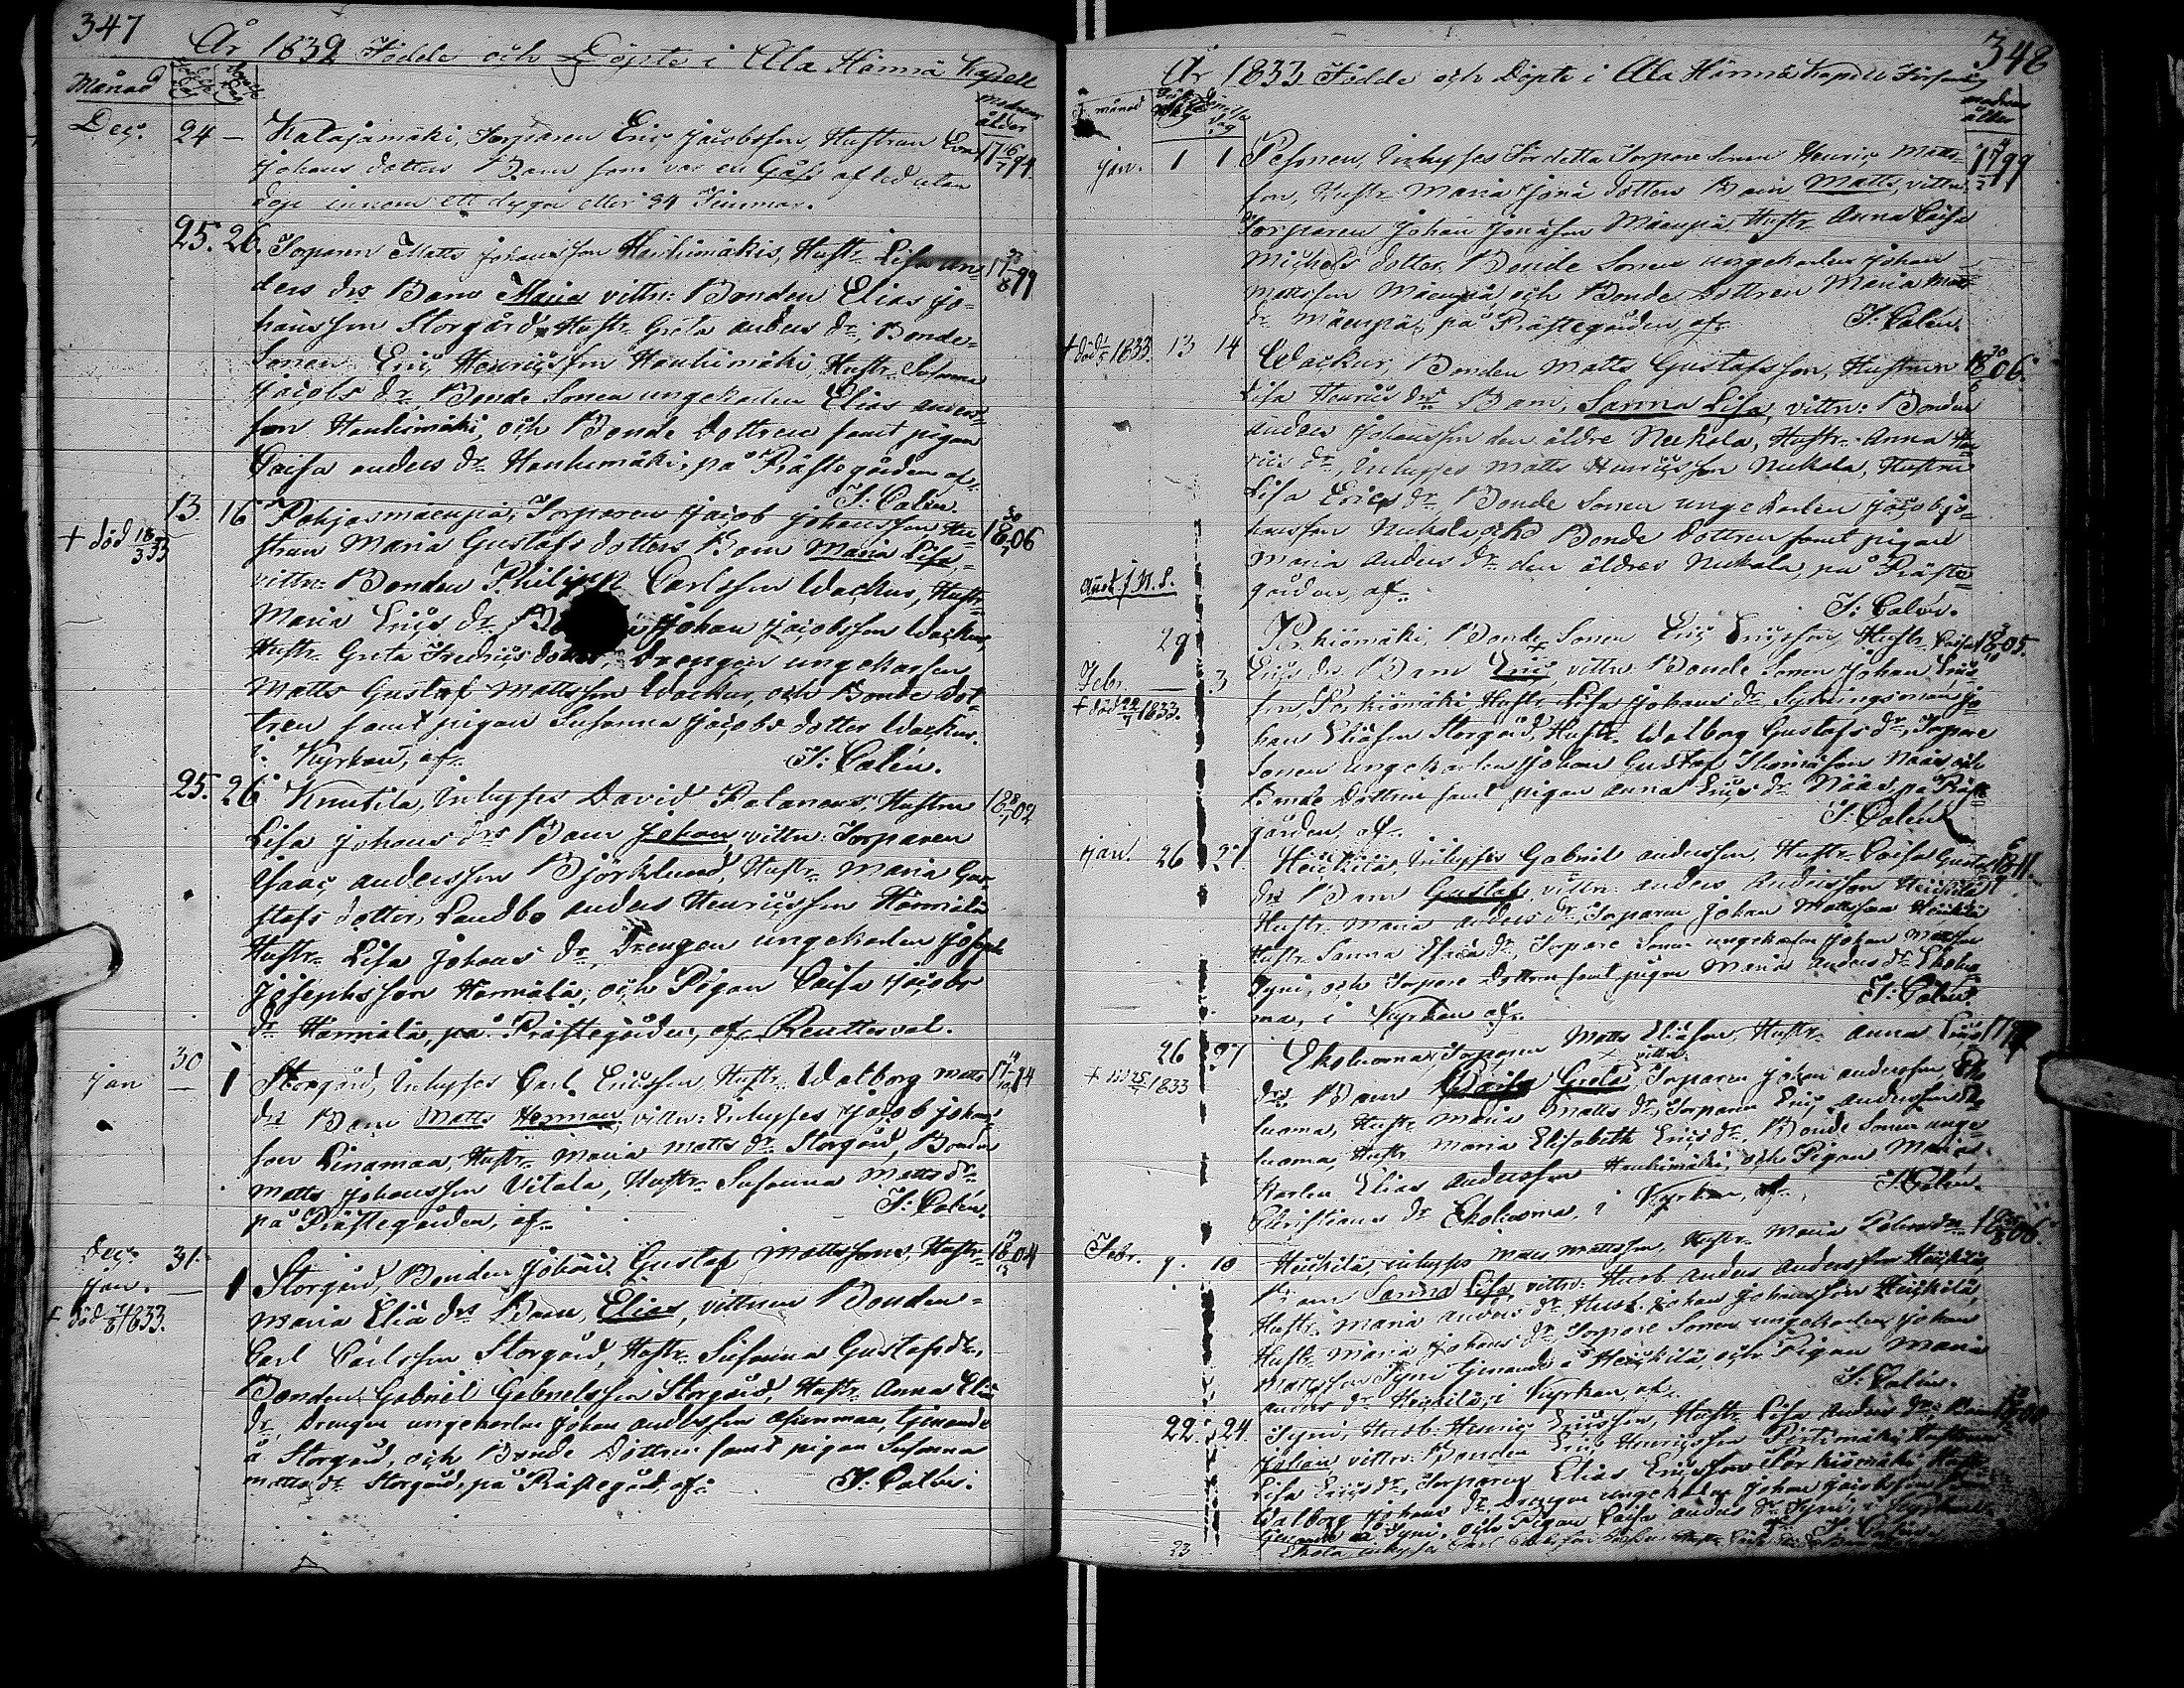 347
År 1832 Födde och Döpte i Ala Härmä Kapell
Månad
modrens ålder
Dec. 24 — Katajamäki, Torparen Eric Jacobsson, Hustrun Eva 1794
Johans dotters Barn som var en Gåsse afled utan
dop innom ett dygn eller 24 Timmar.
25. 26. Torparen Matts Johansson Hanhimäkis, Hustr. Lisa An- 1799
ders drs Barn Maria vittn: Bonden Elias Jo-
hansson Storgård, Hustr. Greta Anders dr, Bonde-
Sonen Eric Henricsson Hanhimäki, Hustr. Susanna
Jacobs dr, Bonde Sonen ungekarlen Elias Anders-
son Hanhimäki, och Bonde Dottren samt pigan
Caisa Anders dr Hanhimäki, på Prästegården af
J: Calén.
13. 16 Pohjasmäenpä, Torparen Jacob Johansson, Hu- 1806
+ död 18/3 33 strun Maria Gustafs dotters Barn Maria Lisa,
vittn: Bonden Philipp Carlsson Wackur, Hustr.
Maria Erics dr Johan Jacobsson Wackur,
Hustr. Greta Fredrics dotter, Drengen ungekarlen
Matts Gustaf Mattsson Wackur, och Bonde Dot-
tren samt pigan Susanna Jacobs dotter Wackur.
i Kyrkan, af
J: Calén.
25. 26 Knutila, Inhyses David Palanens, Hustru 1802
Lisa Johans drs Barn Johan, vittn: Torparen
Isaac Andersson Björklund, Hustr. Maria Gus-
stafs dotter, Landbo Anders Henricsson Härmälä
Hustr. Lisa Johans dr, Drengen ungekarlen Joseph
Josephsson Härmälä, och Pigan Caisa Jacobs
dr Härmälä, på Prästegården, af Renttesval.
30
Jan — 1 Storgård, Inhyses Carl Ericsson, Hustr. Walborg Matts
drs Barn Matts Herman, vittn: Inhyses Jacob Johans-
son Linamaa, Hustr. Maria Matts dr Storgård, Bonden
Matts Johansson Uitala, Hustr. Susanna Matts dr
på Prästegården, af J: Calén.
Dec. 31.
Jan. — 1 Storgård, Bonden Johan Gustaf Mattssons, Hustr. 1804
+ död 1833. Maria Eliæ drs Barn, Elias, vittnen Bonden
Carl Carlsson Storgård, Hustr. Susanna Gustafs dr,
Bonden Gabriel Gabrielsson Storgård, Hustr. Anna Eliæ
dr, Drengen ungekarlen Johan Andersson tjenande
å Storgård, och Bonde Dottren samt pigan Susanna
Matts dr Storgård, på Prästegård, af J: Calén.
348
År 1833 Födde och Döpte i Ala Härmä Kapell
månad
modrens ålder
Jan. 1 1 Pesonen, Inhyses Fördetta Torpare Sonen Henric Matts- 1799
son, Hustr. Maria Jonæ dotters Barn Matts, vittn:
Torparen Johan Jonasson Mäenpä, Hustr. Anna Caisa
Michels dotter, Bonde Sonen ungekarlen Johan
Mattsson Mäenpä och Bonde Dottren Maria Matts
dr Mäenpä, på Prästegården, af J: Calén.
+ död 1833. 13 14 Wackur, Bonden Matts Gustafsson, Hustrun 1806.
Lisa Henrics drs Barn, Sanna Lisa, vittn: Bonden
Anders Johansson den äldre Nuckala, Hustr. Anna Hen-
rics dr, Inhyses Matts Henricsson Nuckala, Hustrun
Lisa Erics dr, Bonde Sonen ungekarlen Jacob Jo-
hansson Nuckala, och Bonde Dottren samt pigan
Maria Anders dr den äldres Nuckala, på Präste-
gården, af
J: Calén.
29 Porkiömäki, Bonde Sonen Eric Ericsson, Hustr. Caisa 1805.
Febr — 3 Erics drs Barn Eric, vittn: Bonde Sonen Johan Erics-
+ död 1833. son, Porkiömäki, Hustr. Lisa Johans dr Jo-
han Eliæson Storgård, Hustr. Walborg Gustafs dr, Torpare
Sonen ungekarlen Johan Gustaf Thomasson Näs och
Bonde Dottren samt pigan Anna Erics dr Näs, på Präste-
gården, af
J: Calén.
Jan. 26 27. Heickilä, Inhyses Gabriel Andersson, Hustr. Caisa Gustafs 1811.
drs Barn Gustaf, vittn: Anders Andersson Heickilä
Hustr. Maria Anders dr, Torparen Johan Mattsson Heickilä
Hustr. Sanna dr, Torpare Sonen ungekarlen Johan Mattsson
Syni, och Torpare Dottren samt pigan Maria Anders dr Ekoluo-
ma, i Kyrkan af
J: Calén.
26 27 Ekoluoma, Torparen Matts Eliæson, Hustr. Anna Erics
+ död 1833 drs Barn Caisa Greta, vittn: Torparen Johan Andersson Eko-
luoma, Hustr. Maria Matts dr, Torparen Eric Andersson Eko-
luoma, Hustr. Maria Elisabeth Erics dr, Bonde Sonen unge-
karlen Elias Andersson Hanhimäki, och Pigan Maria
Christians dr Ekoluoma, i Kyrkan, af J: Calén.
Febr. 9. 10 Heickilä, inhyses Matts Mattsson, Hustr. Maria drs 1806.
Barn Sanna Lisa, vittn: Husb. Anders Andersson Heickilä,
Hustr. Maria Anders dr Husb. Johan Johansson Heickilä,
Hustr. Maria Johans dr, Torpare Sonen ungekarlen Johan
Mattsson Syni tjenande å Heickilä, och Pigan Maria
Anders dr Heickilä, i Kyrkan, af J: Calén.
22. 24. Syni, Husb. Henric Ericsson, Hustr. Lisa Anders drs Barn
Johan vittn: Bonden Eric Henricsson Pirttimäki, Hustrun
Lisa Erics dr, Torparen Elias Ericsson Porkiömäki Hustr.
Walborg Johans dr, Drengen ungekarlen Johan Jacobsson
tjenande å Syni, och Pigan Caisa Anders dr Syni, i Kyrkan
af J: Calén
23 Ekola, inhyses Carl